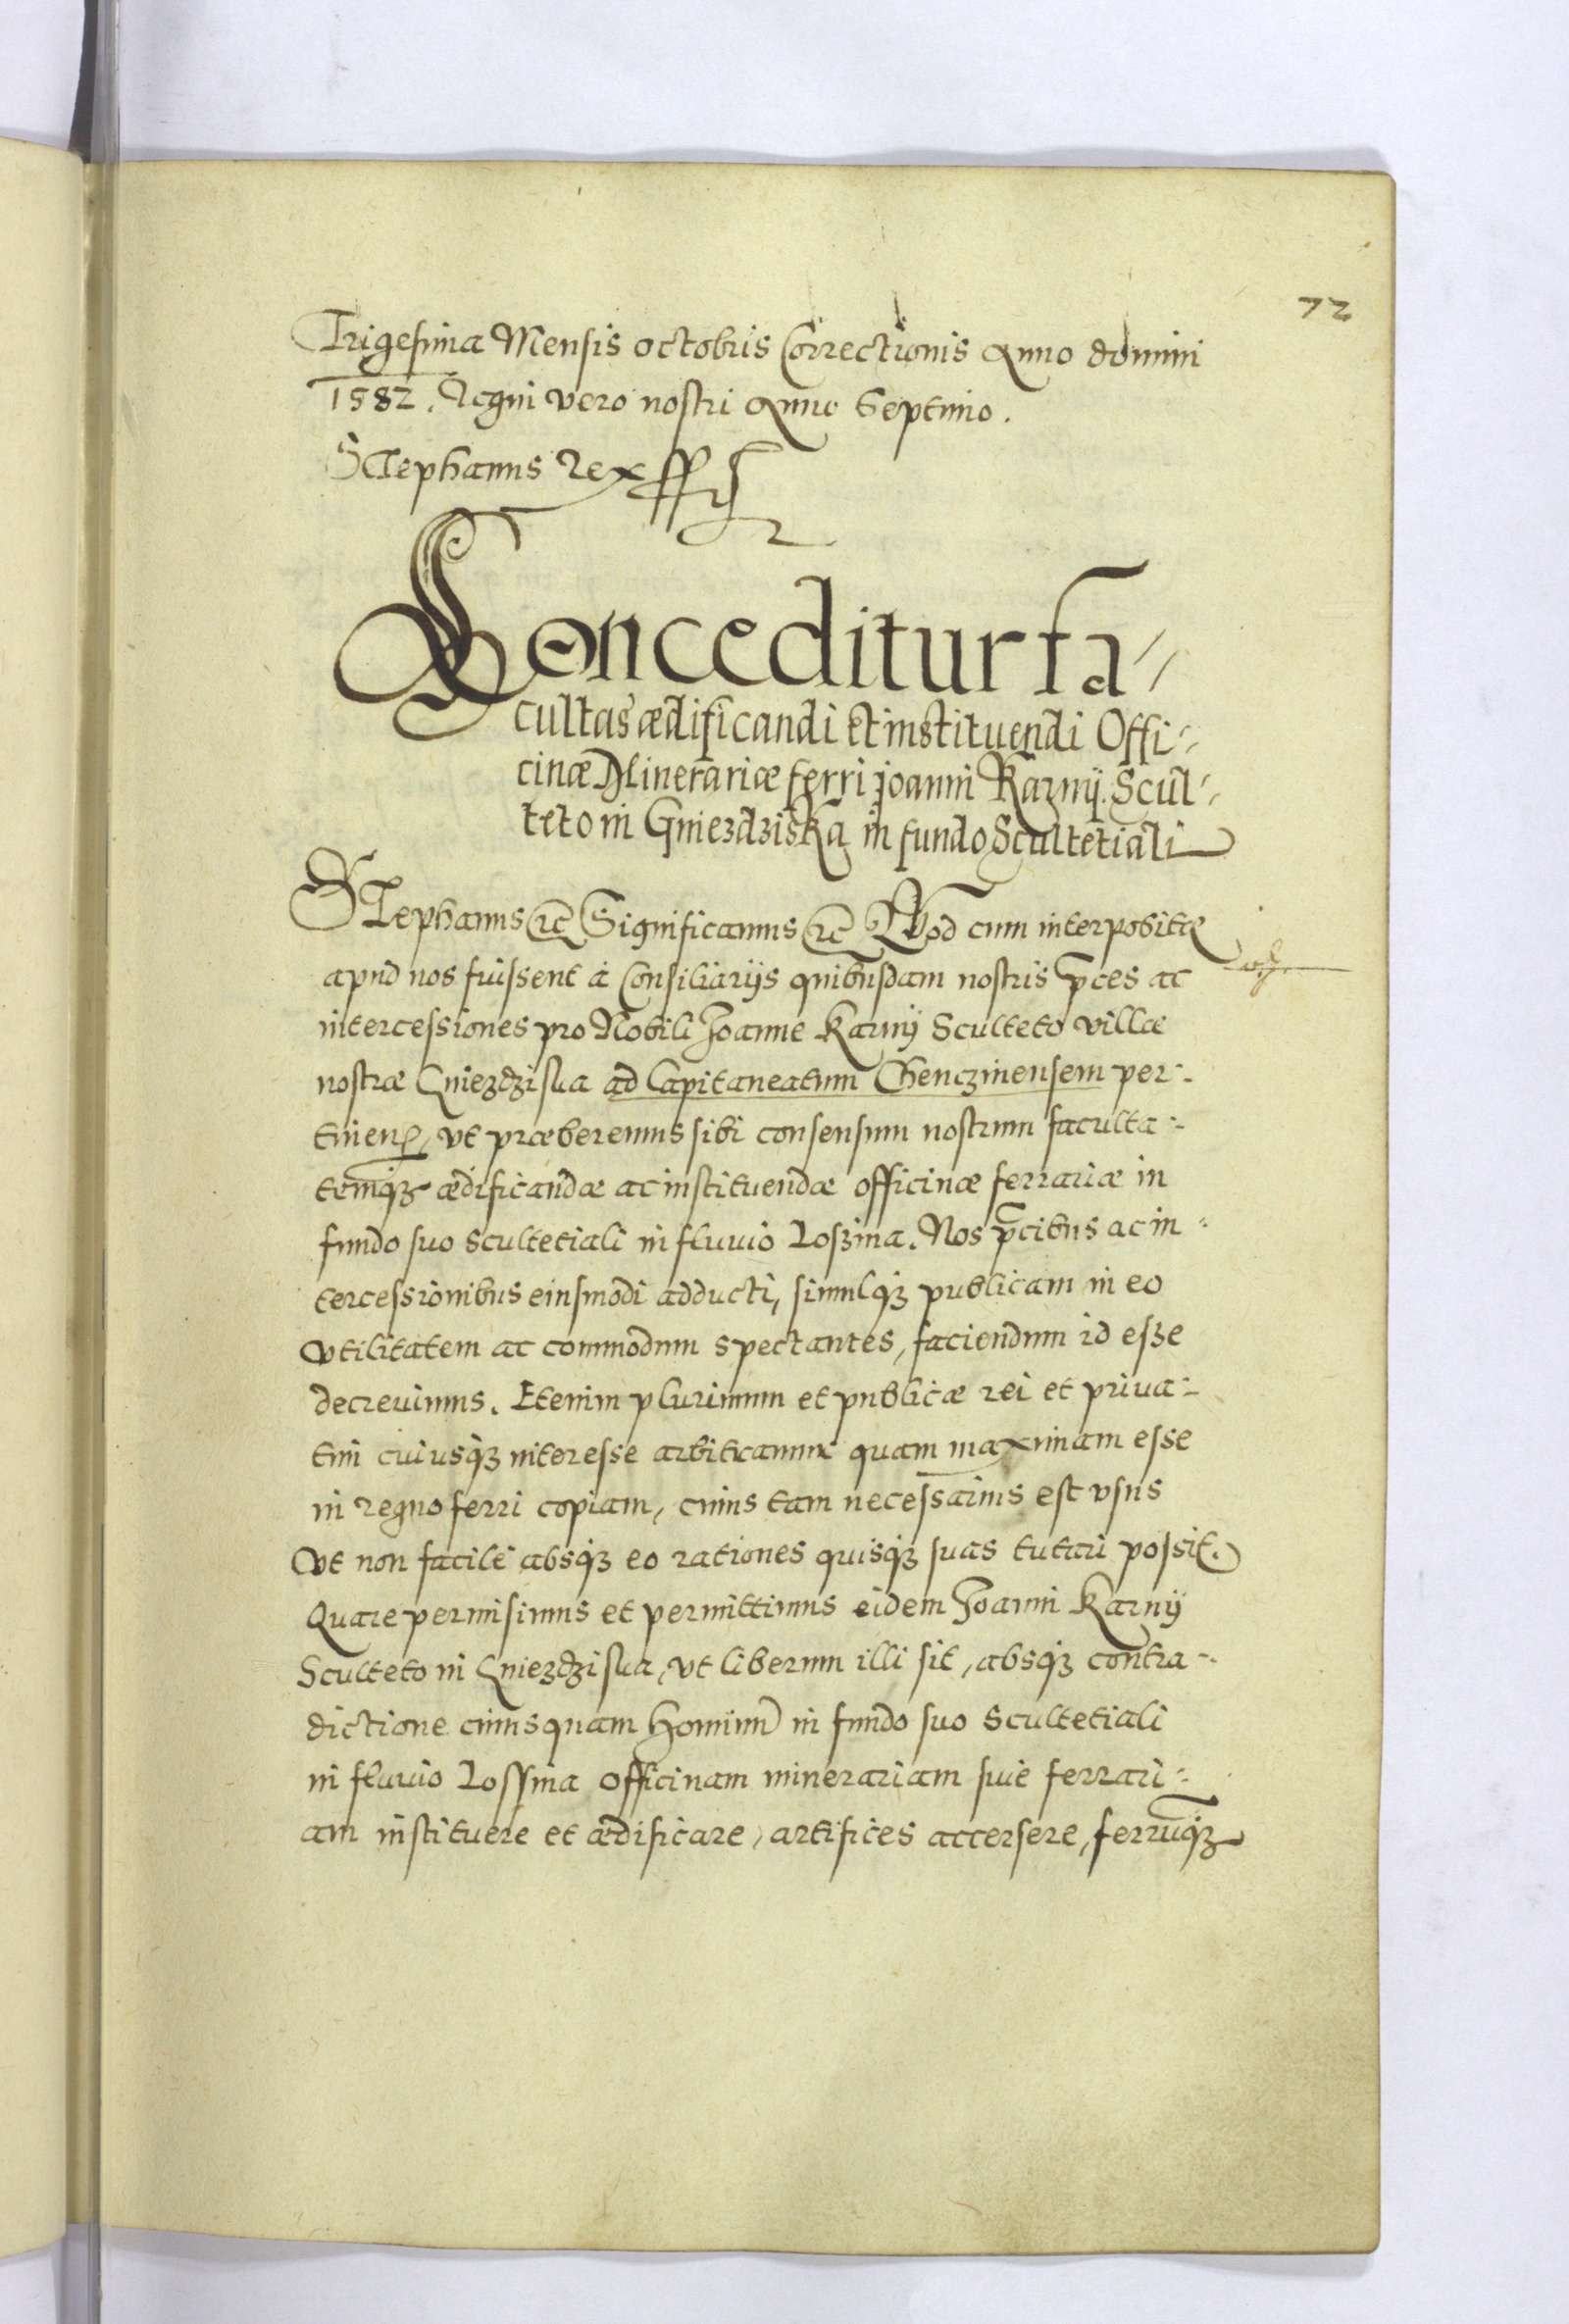 72
Trigesima Mensis octobris Correctionis Anno domini
1582. Regni vero nostri Anno Septimo.
STephanus Rex
Conceditur fa-
cultas ædificandi et instituendi Offi-
cinæ Minerariæ ferri Joanni Karnij Scul-
teto in Gniezdziska in fundo Scultetiali
STephanus etc Significamus etc Quod cum interpositæ
apud nos fuissent à Consiliarijs quibusdam nostris pces ac
intercessiones pro Nobili Joanne Karnij Sculteto villæ
nostræ Gniezdziska ad Capitaneatum Chenczinensem per-
tinen, vt præberemus sibi consensum nostrum faculta-
temqꝫ ædificandæ ac instituendæ officinæ ferrariæ in
fundo suo Scultetiali in fluvio Loszina. Nos pcibus ac in-
tercessionibus eiusmodi adducti, simulqꝫ publicam in eo
vtilitatem ac commodum spectantes, faciendum id esse
decrevimus. Etenim plurimum et publicæ rei et priva-
tim cuiusqꝫ interesse arbitramur quam maximam esse
in regno ferri copiam, cuius tam necessarius est vsus
Vt non facile absqꝫ eo rationes quisqꝫ suas tutari possit.
Quare permisimus et permittimus eidem Joanni Karnij
Sculteto in Gniezdziska, vt liberum illi sit, absqꝫ contra-
dictione cuiusquam Hominū in fundo suo Scultetiali
in fluvio Lossina officinam minerariam sive ferrari-
am instituere et ædificare, artifices accersere, ferrūqꝫ